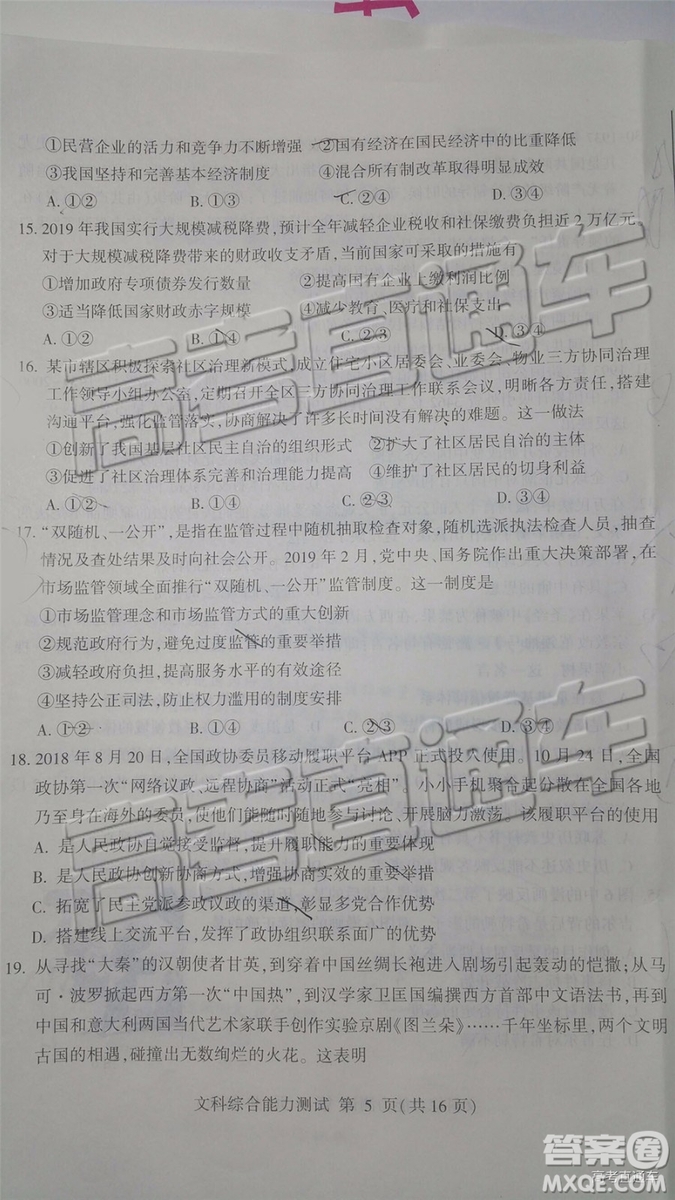 ①民营企业的活力和竞争力不断增强 ②国有经济在国民经济中的比重降低
③我国坚持和完善基本经济制度 ④混合所有制改革取得明显成效
A. ①② B. ①③ C. ②④ D. ③④
15. 2019 年我国实行大规模减税降费,预计全年减轻企业税收和社保缴费负担近 2 万亿元。
对于大规模减税降费带来的财政收支矛盾,当前国家可采取的措施有
①增加政府专项债券发行数量 ②提高国有企业上缴利润比例
③适当降低国家财政赤字规模 ④减少教育、医疗和社保支出
A. ①② B. ①④ C. ②③ D. ③④
16. 某市辖区积极探索社区治理新模式,成立住宅小区居委会、业委会、物业三方协同治理
工作领导小组办公室,定期召开全区三方协同治理工作联系会议,明晰各方责任,搭建
沟通平台,强化监管落实,协商解决了许多长时间没有解决的难题。这一做法
①创新了我国基层社区民主自治的组织形式 ②扩大了社区居民自治的主体
③促进了社区治理体系完善和治理能力提高 ④维护了社区居民的切身利益
A. ①② B. ①④ C. ②③ D. ③④
17. “双随机、一公开”,是指在监管过程中随机抽取检查对象,随机选派执法检查人员,抽查
情况及查处结果及时向社会公开。2019 年 2 月,党中央、国务院作出重大决策部署,在
市场监管领域全面推行“双随机、一公开”监管制度。这一制度是
①市场监管理念和市场监管方式的重大创新
②规范政府行为,避免过度监管的重要举措
③减轻政府负担,提高服务水平的有效途径
④坚持公正司法,防止权力滥用的制度安排
A. ①② B. ①④ C. ②③ D. ③④
18. 2018 年 8 月 20 日,全国政协委员移动履职平台 APP 正式投入使用。10 月 24 日,全国
政协第一次“网络议政、远程协商”活动正式“亮相”。小小手机聚合起分散在全国各地
乃至身在海外的委员,使他们能随时随地参与讨论、开展脑力激荡。该履职平台的使用
A. 是人民政协自觉接受监督,提升履职能力的重要体现
B. 是人民政协创新协商方式,增强协商实效的重要举措
C. 拓宽了民主党派参政议政的渠道,彰显多党合作优势
D. 搭建线上交流平台,发挥了政协组织联系面广的优势
19. 从寻找“大秦”的汉朝使者甘英,到穿着中国丝绸长袍进入剧场引起轰动的恺撒;从马
可·波罗掀起西方第一次“中国热”,到汉学家卫匡国编撰西方首部中文语法书,再到
中国和意大利两国当代艺术家联手创作实验京剧《图兰朵》……千年坐标里,两个文明
古国的相遇,碰撞出无数绚烂的火花。这表明
文科综合能力测试 第 5 页(共 16 页)
高考直通车
高考直通车
答案圈
高考直通车
MXQE.COM